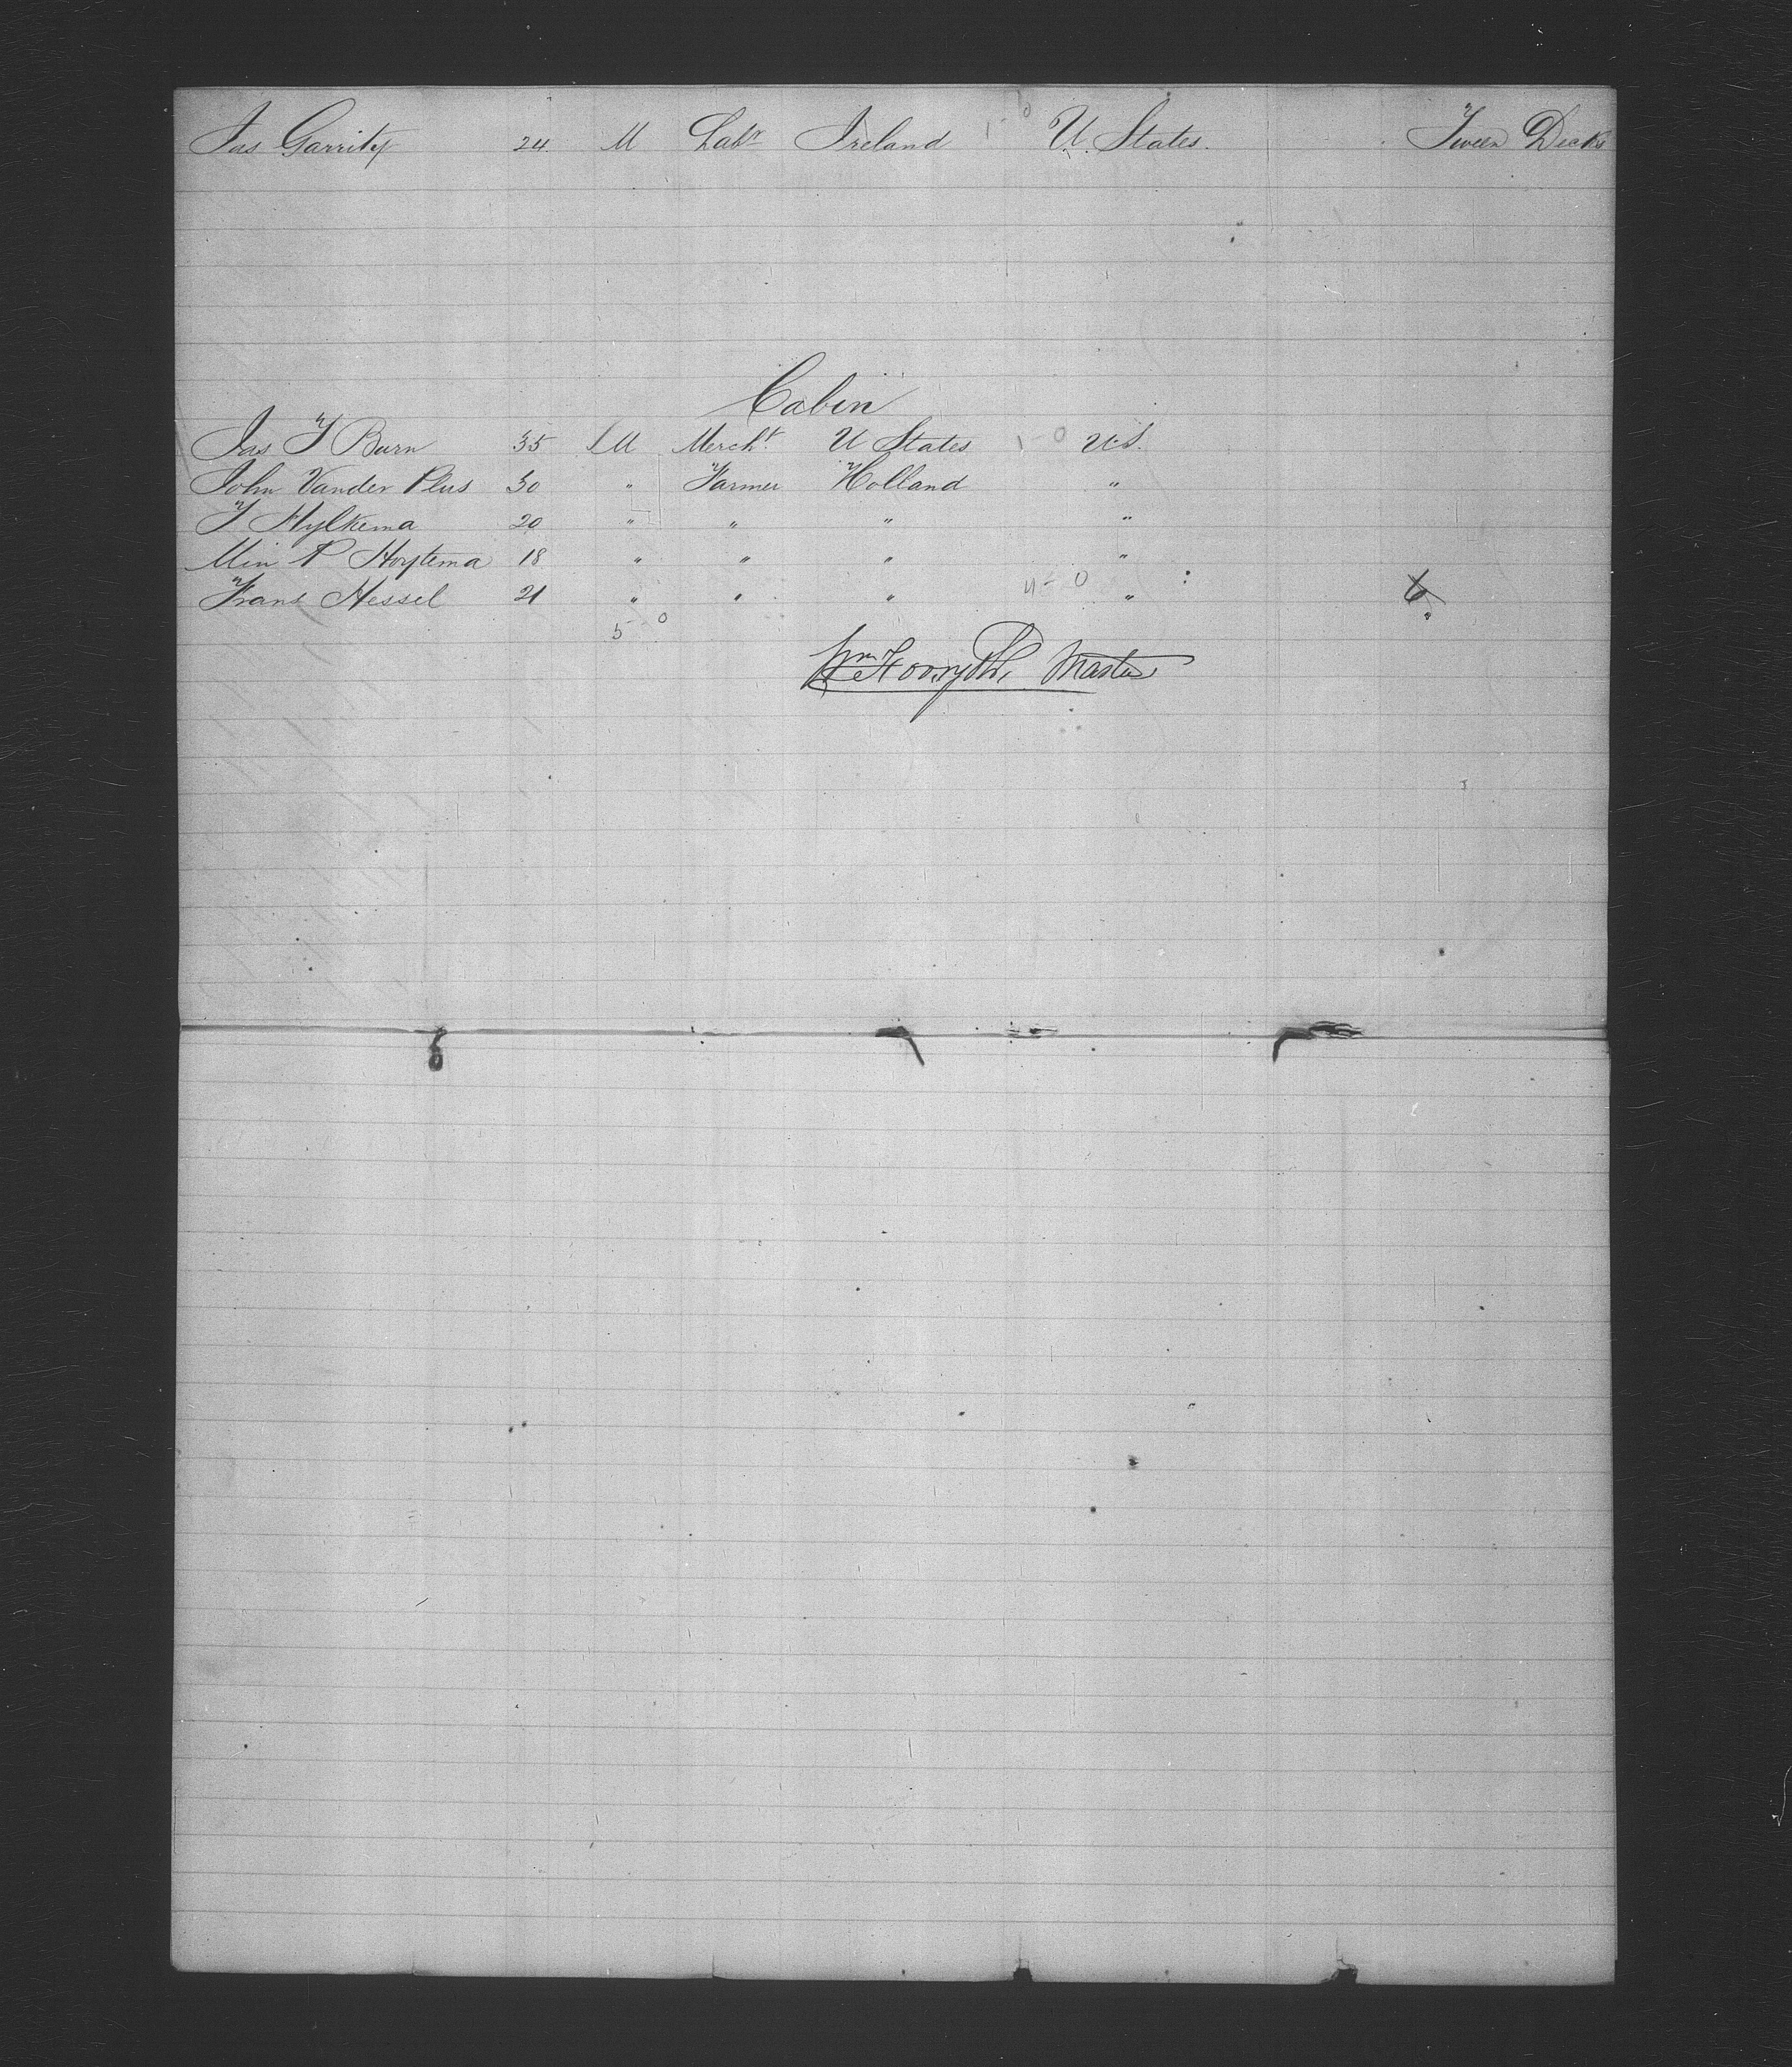 Jas Garrity 24 M Labr Ireland 1-0 U. States. Tween Decks
Cabin
Jas T Burn 35 M Mercht U States 1-0 U.S.
John Vander Plus 30 " Farmer Holland "
T Hylkema 20 " " " "
Min P Hoytema 18 " " " "
Frans Hessel 21 " " " 4-0 " 6
5 0
Wm Forsyth, Master